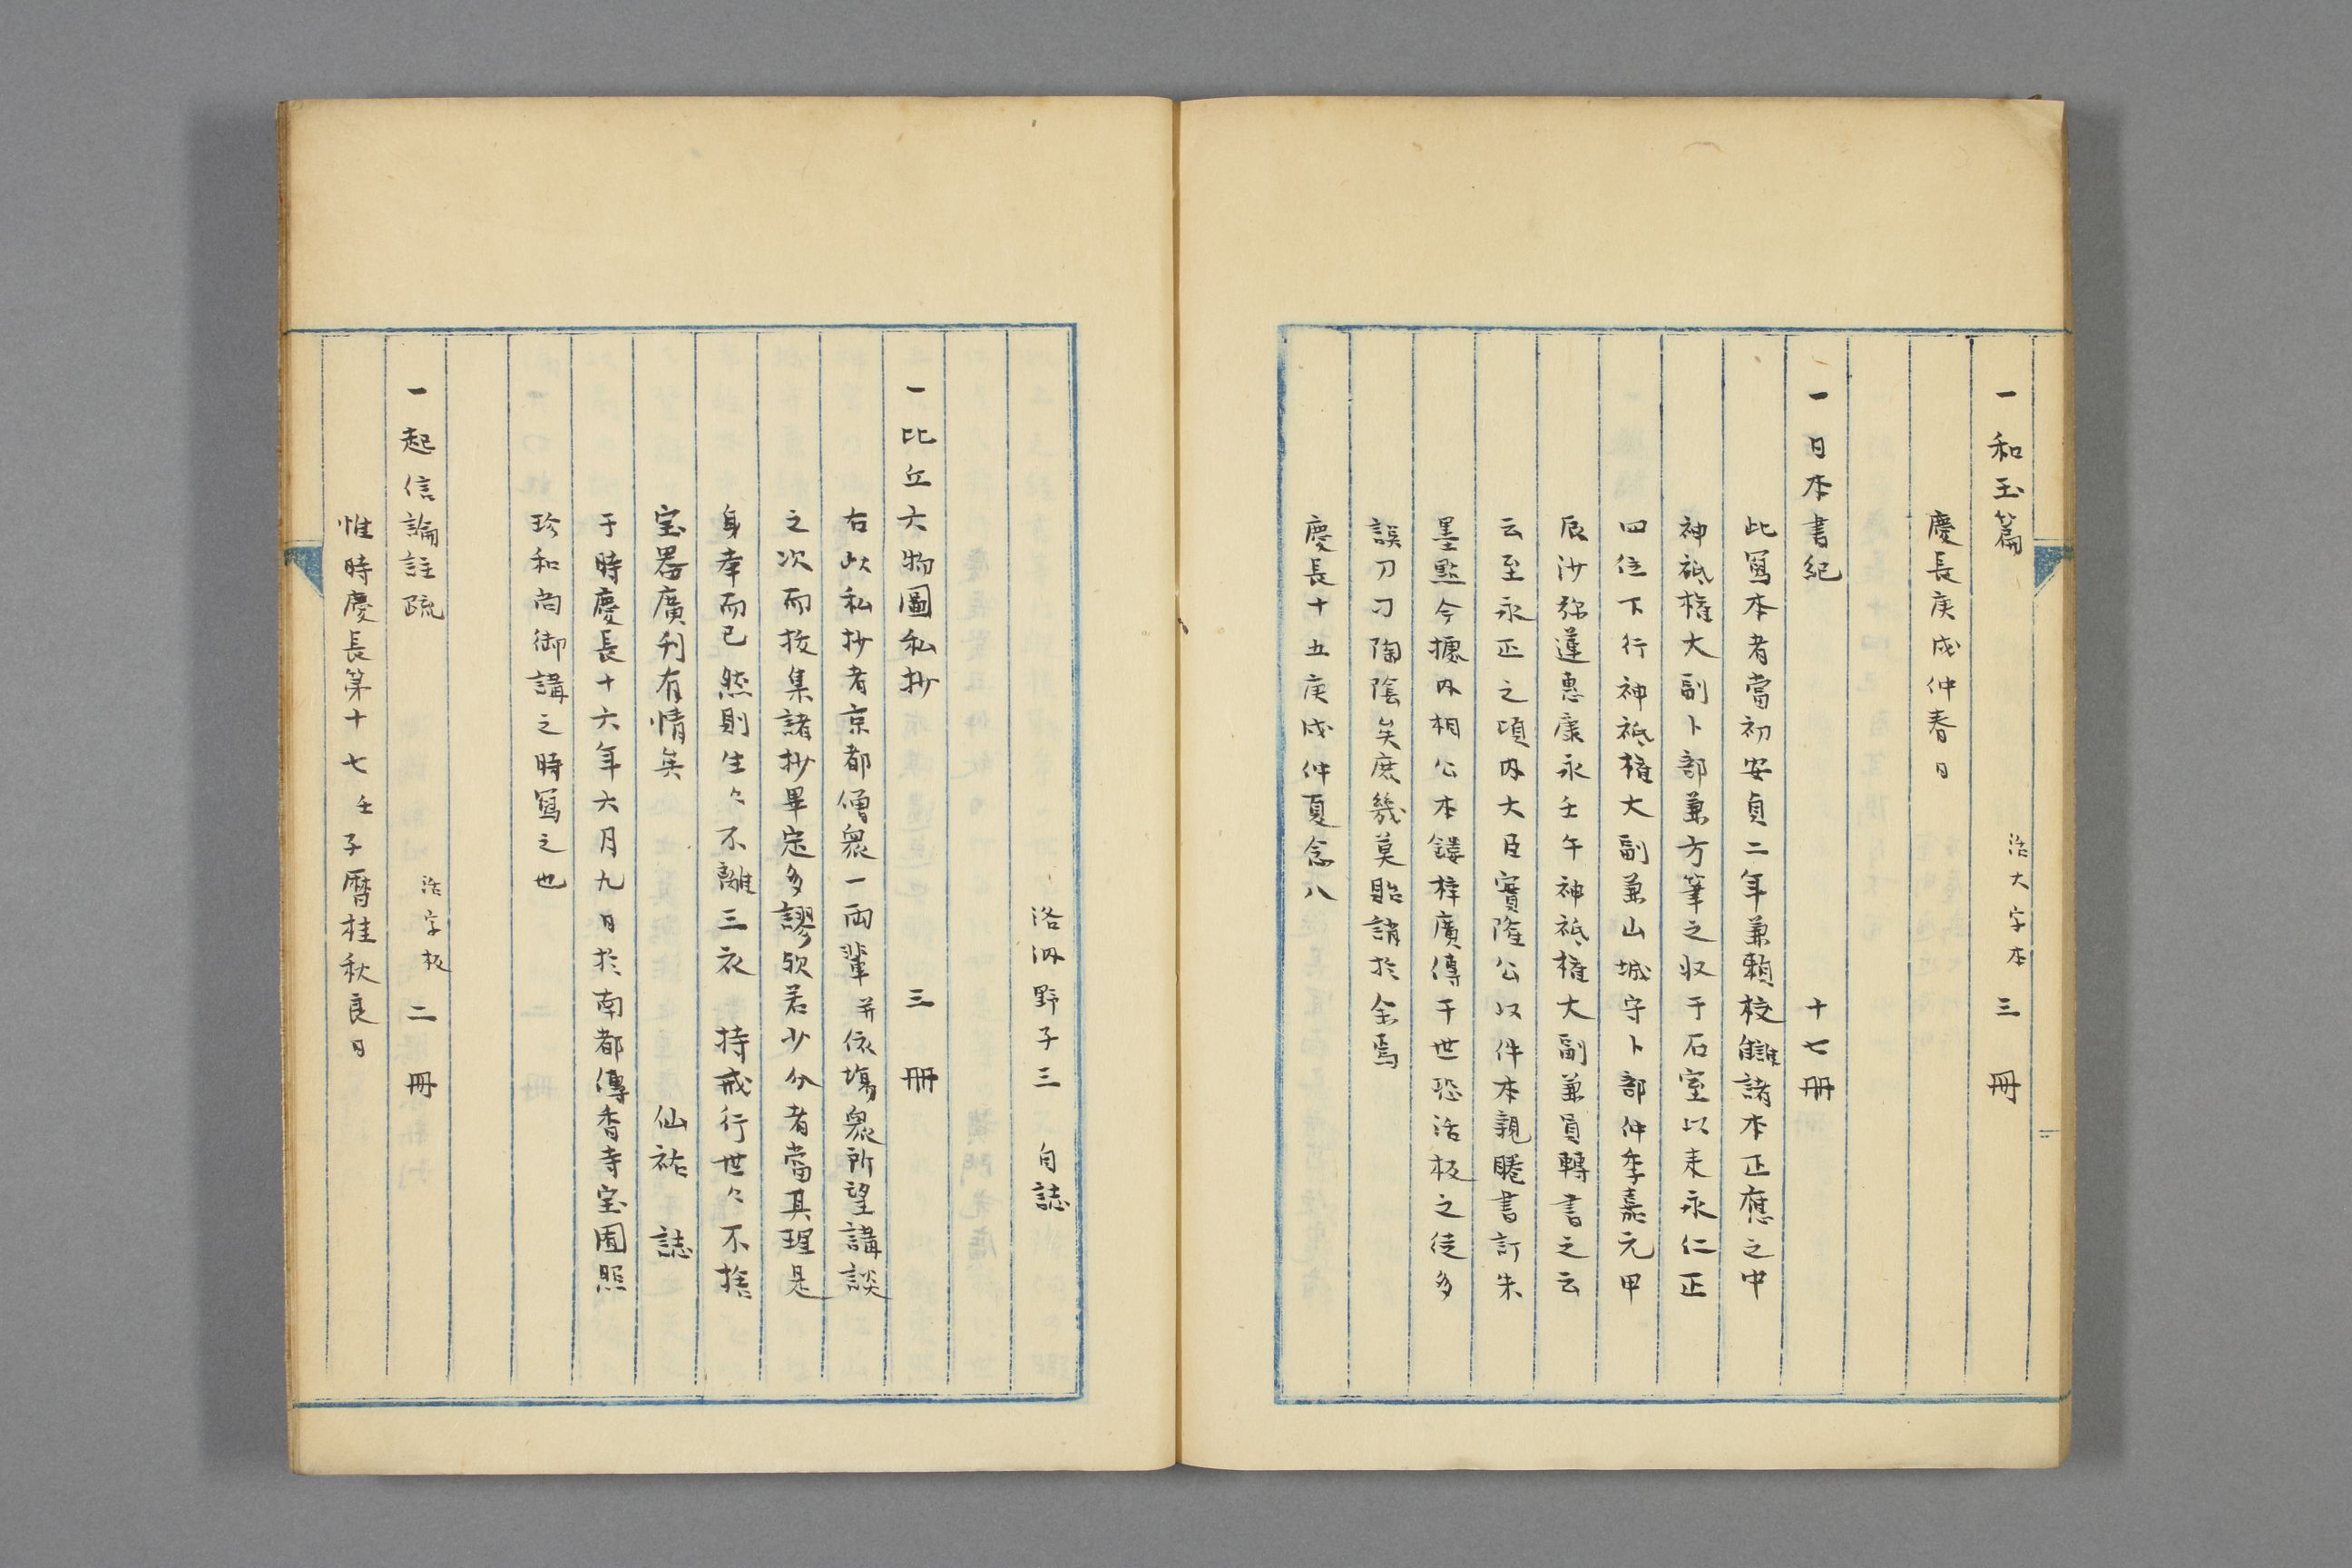 一 和玉篇 活大字本 三冊
慶長庚戌仲春日
一 日本書紀 十七冊
此寫本者當初安貞二年兼賴校讎諸本正應之中
神祇權大副卜部兼方筆之収于石室以来永仁正
四位下行神祇權大副兼山城守卜部仲季嘉元甲
辰沙弥蓮惠康永壬午神祇權大副兼員轉書之云
云至永正之頃内大臣實隆公以件本親睠書訂朱
墨點今攄内相公本鏤梓廣傳于世恐活板之徒多
誤刀刁陶陰矣庶幾莫貽誚於余焉
慶長十五庚戌仲夏念八
洛汭野子三 白誌
一 比丘六物圖私抄 三冊
右此私抄者京都僧衆一両輩并依塲衆所望講談
之次而抜集諸抄畢定多謬欤若少分者當其理是
身幸而已然則生々不離三衣 持戒行世々不捨
宝器廣刋有情矣 仙祐 誌
于時慶長十六年六月九日於南都傳香寺宝囿照
珍和尚御講之時寫之也
一 起信論註疏 活字板 二冊
惟時慶長第十七壬子暦桂秋良日